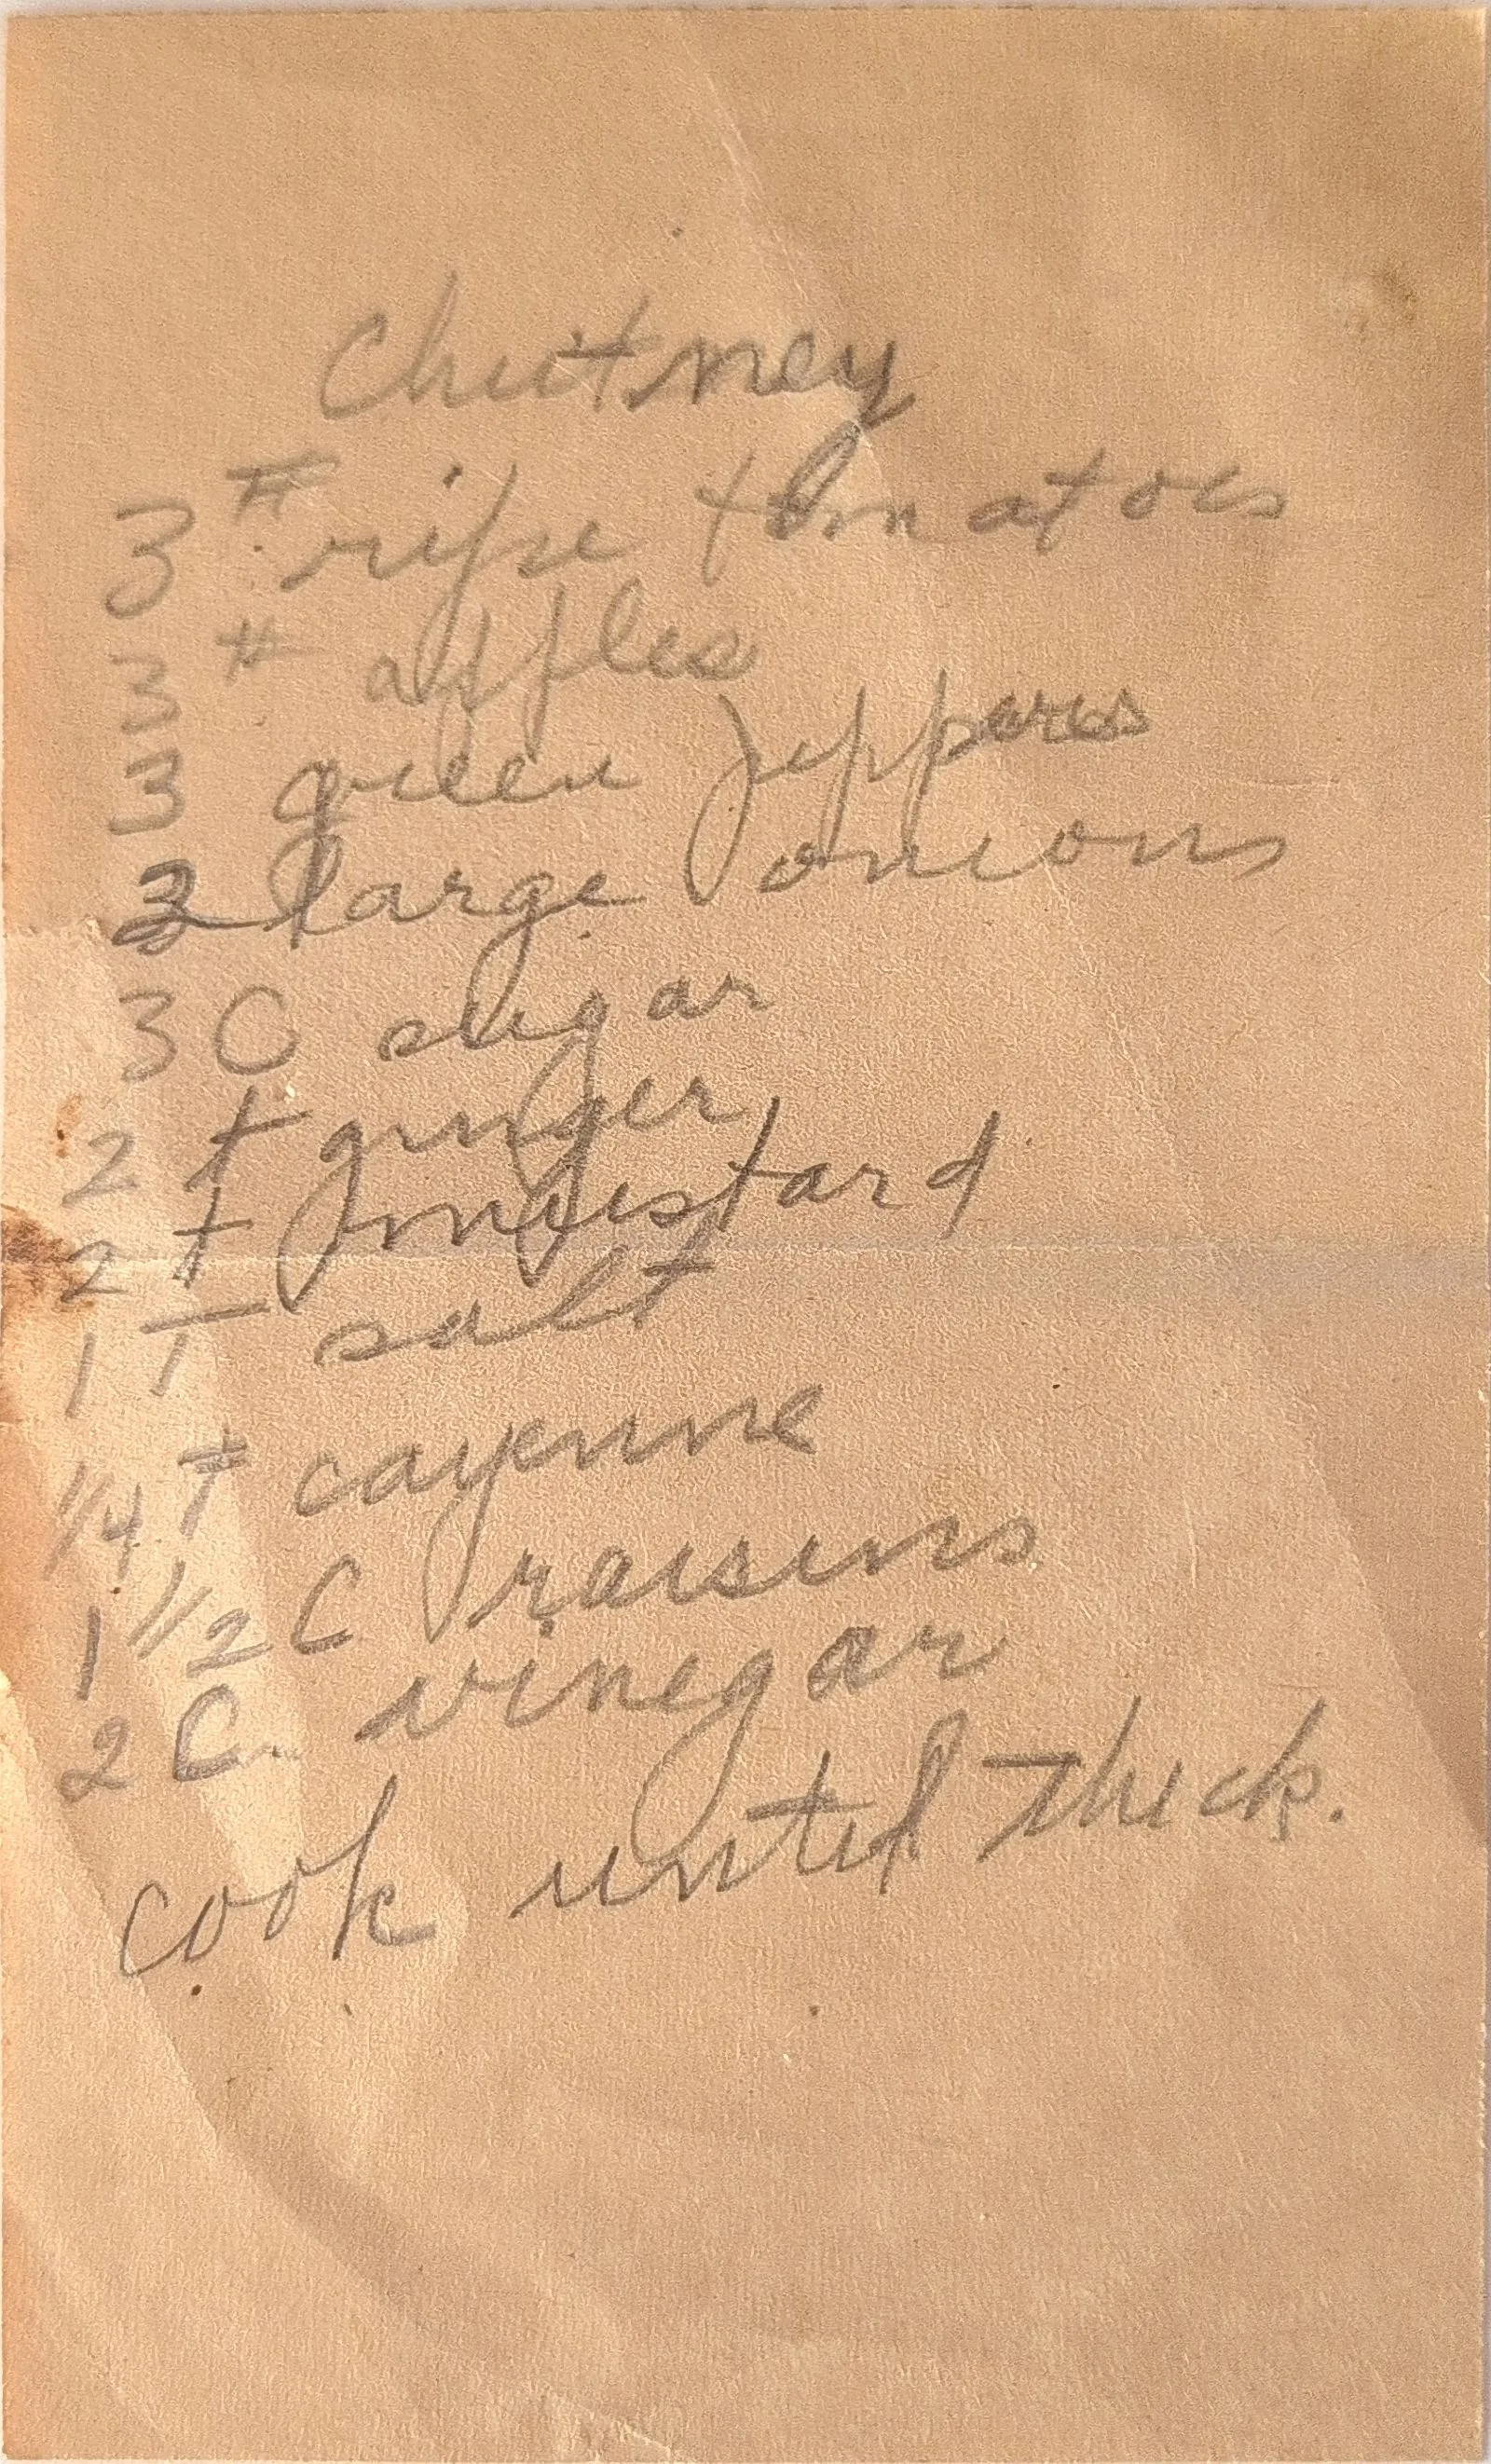 Chutney
3 # ripe tomatoes
3 # apples
3 green peppers
large onions
3 C sugar
2 t ginger
2 t mustard
1 T salt
1/4 t cayenne
1 1/2 C raisins
2 C. vinegar
cook until thick.